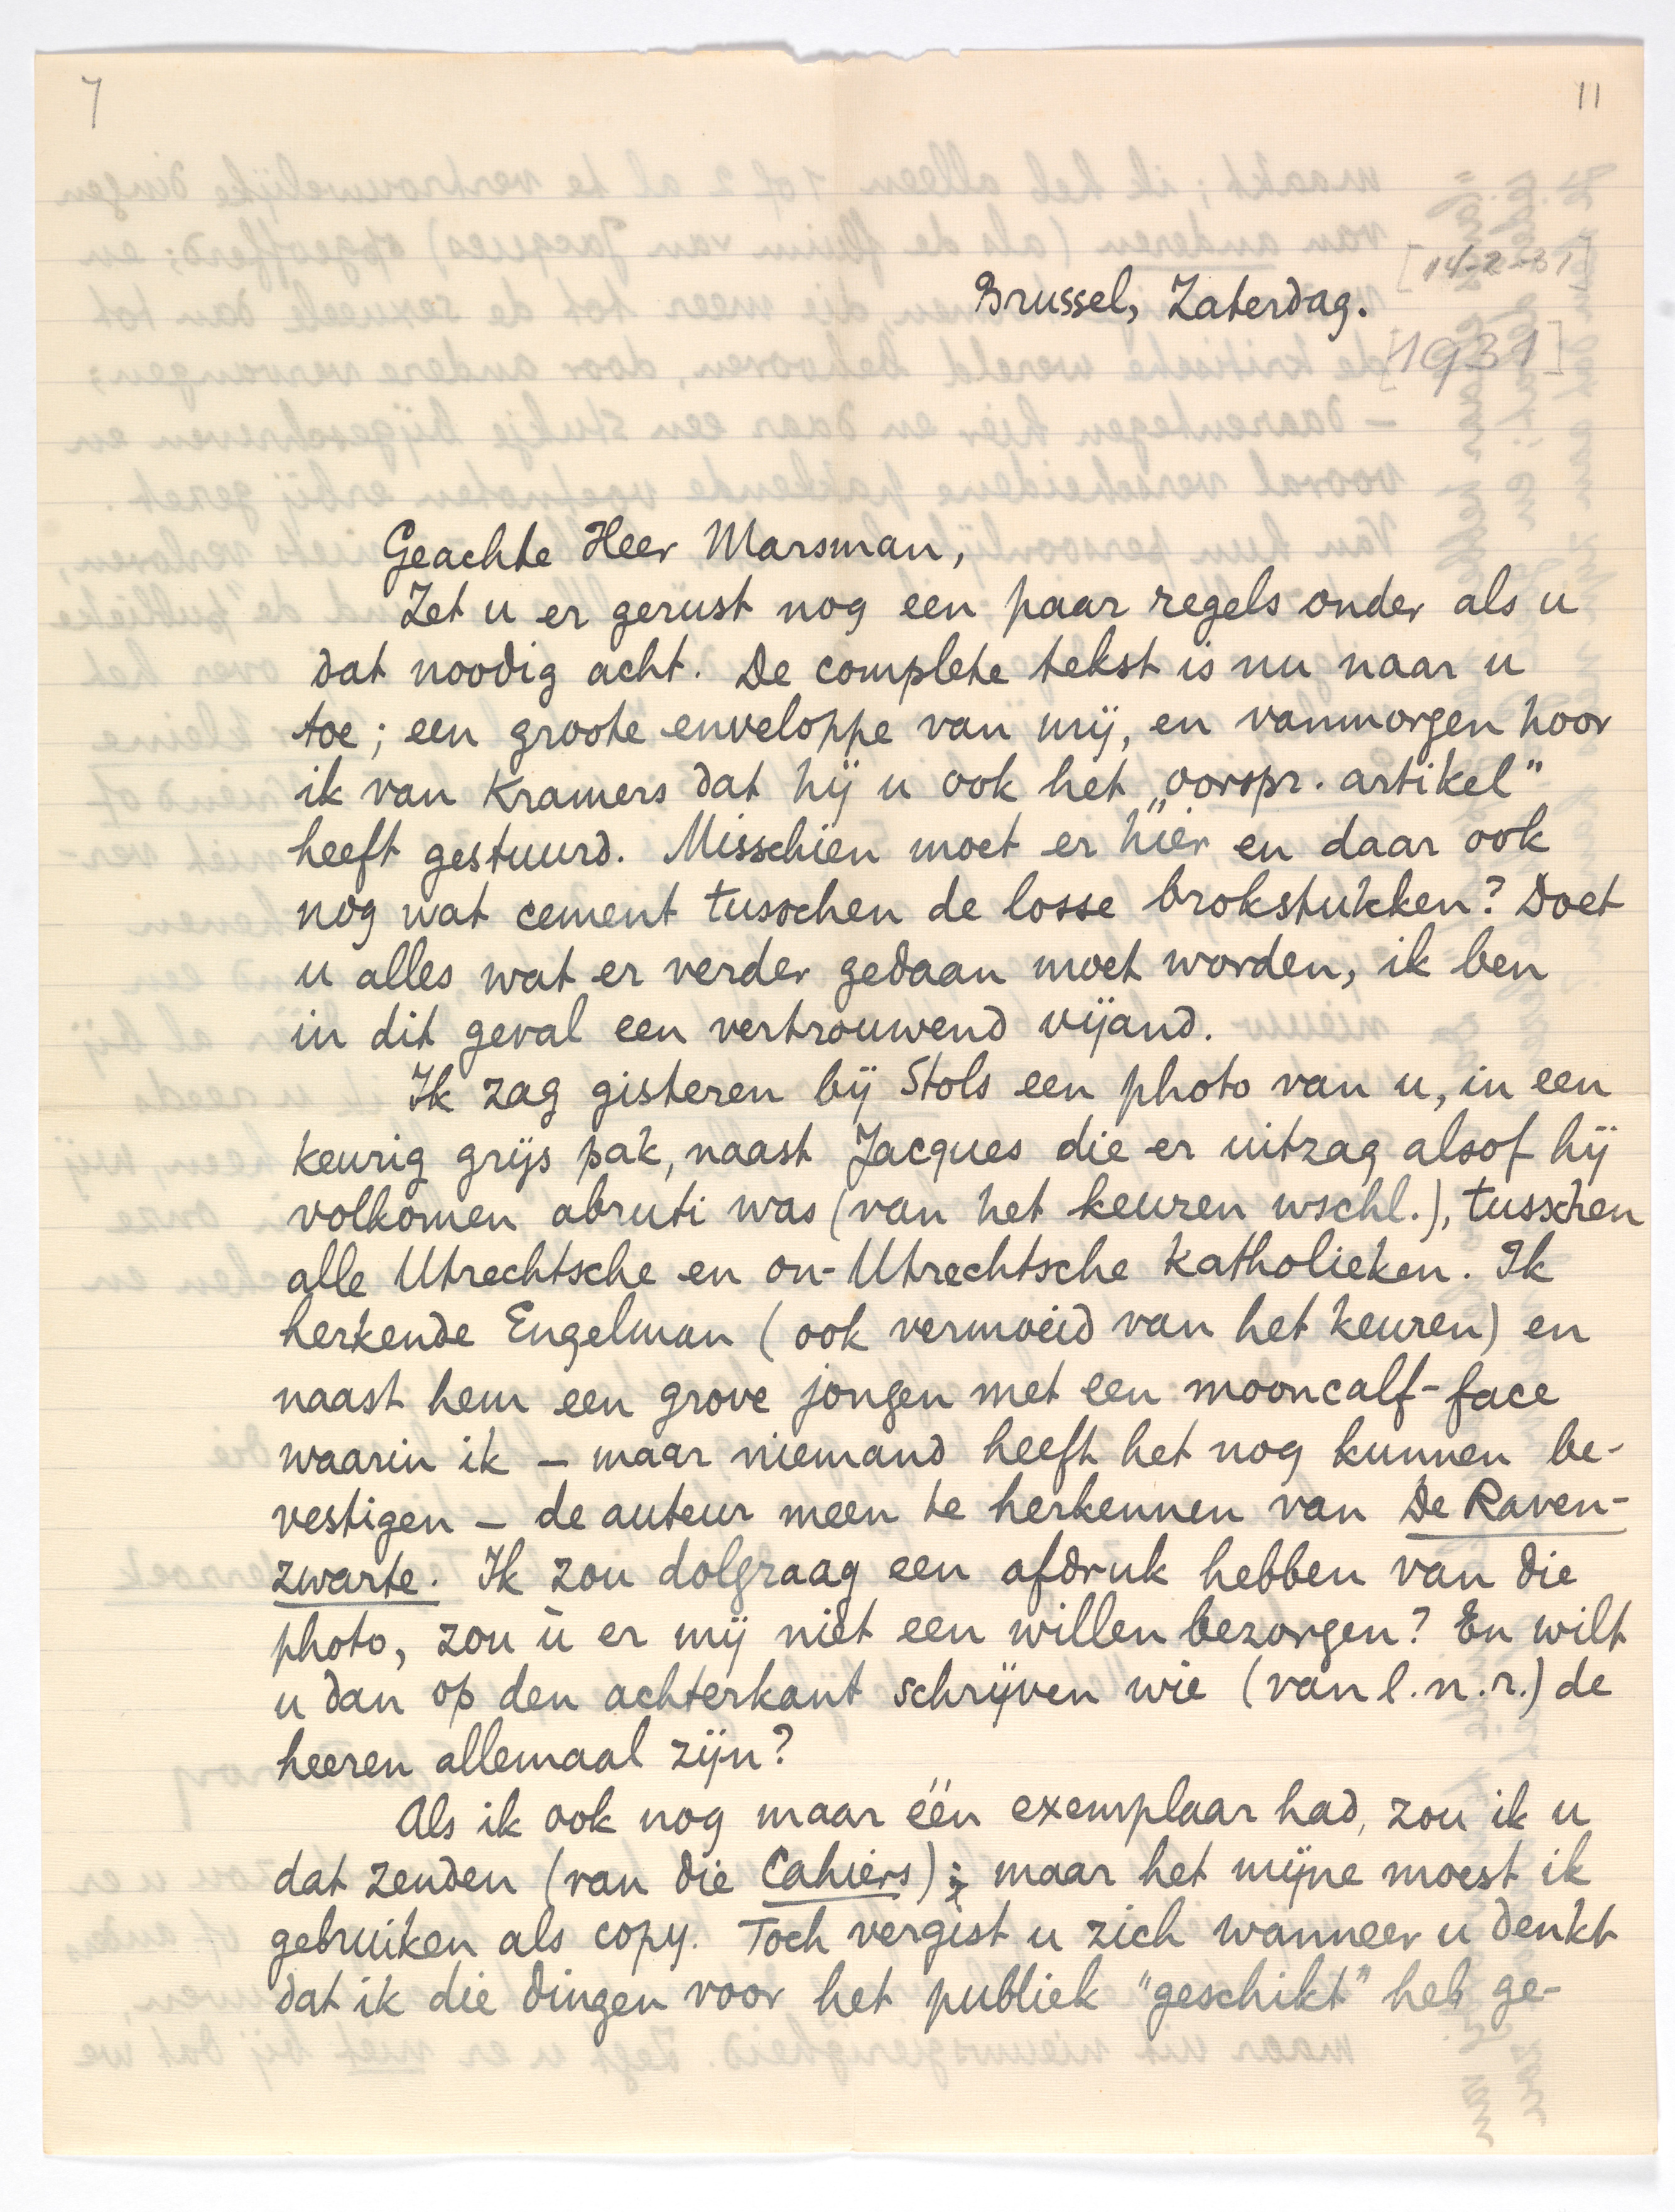 7
11
[14-2-31]
Brussel, Zaterdag.
[1931]
Geachte Heer Marsman,
Zet u er gerust nog een paar regels onder als u
dat noodig acht. De complete tekst is nu naar u
toe; een groote enveloppe van mij, en vanmorgen hoor
ik van Kramers dat hij u ook het „oorspr. artikel"
heeft gestuurd. Misschien moet er hier en daar ook
nog wat cement tusschen de losse brokstukken? Doet
u alles wat er verder gedaan moet worden, ik ben
in dit geval een vertrouwend vijand.
Ik zag gisteren bij Stols een photo van u, in een
keurig grijs pak, naast Jacques die er uitzag alsof hij
volkomen abruti was (van het keuren wschl.), tusschen
alle Utrechtsche en on-Utrechtsche katholieken. Ik
herkende Engelman (ook vermoeid van het keuren) en
naast hem een grove jongen met een mooncalf-face
waarin ik – maar niemand heeft het nog kunnen be-
vestigen – de auteur meen te herkennen van De Raven-
zwarte. Ik zou dolgraag een afdruk hebben van die
photo, zou ù er mij niet een willen bezorgen? En wilt
u dan op den achterkant schrijven wie (van l.n.r.) de
heeren allemaal zijn?
Als ik ook nog maar één exemplaar had, zou ik u
dat zenden (van die Cahiers); maar het mijne moest ik
gebruiken als copy. Toch vergist u zich wanneer u denkt
dat ik die dingen voor het publiek "geschikt" heb ge-